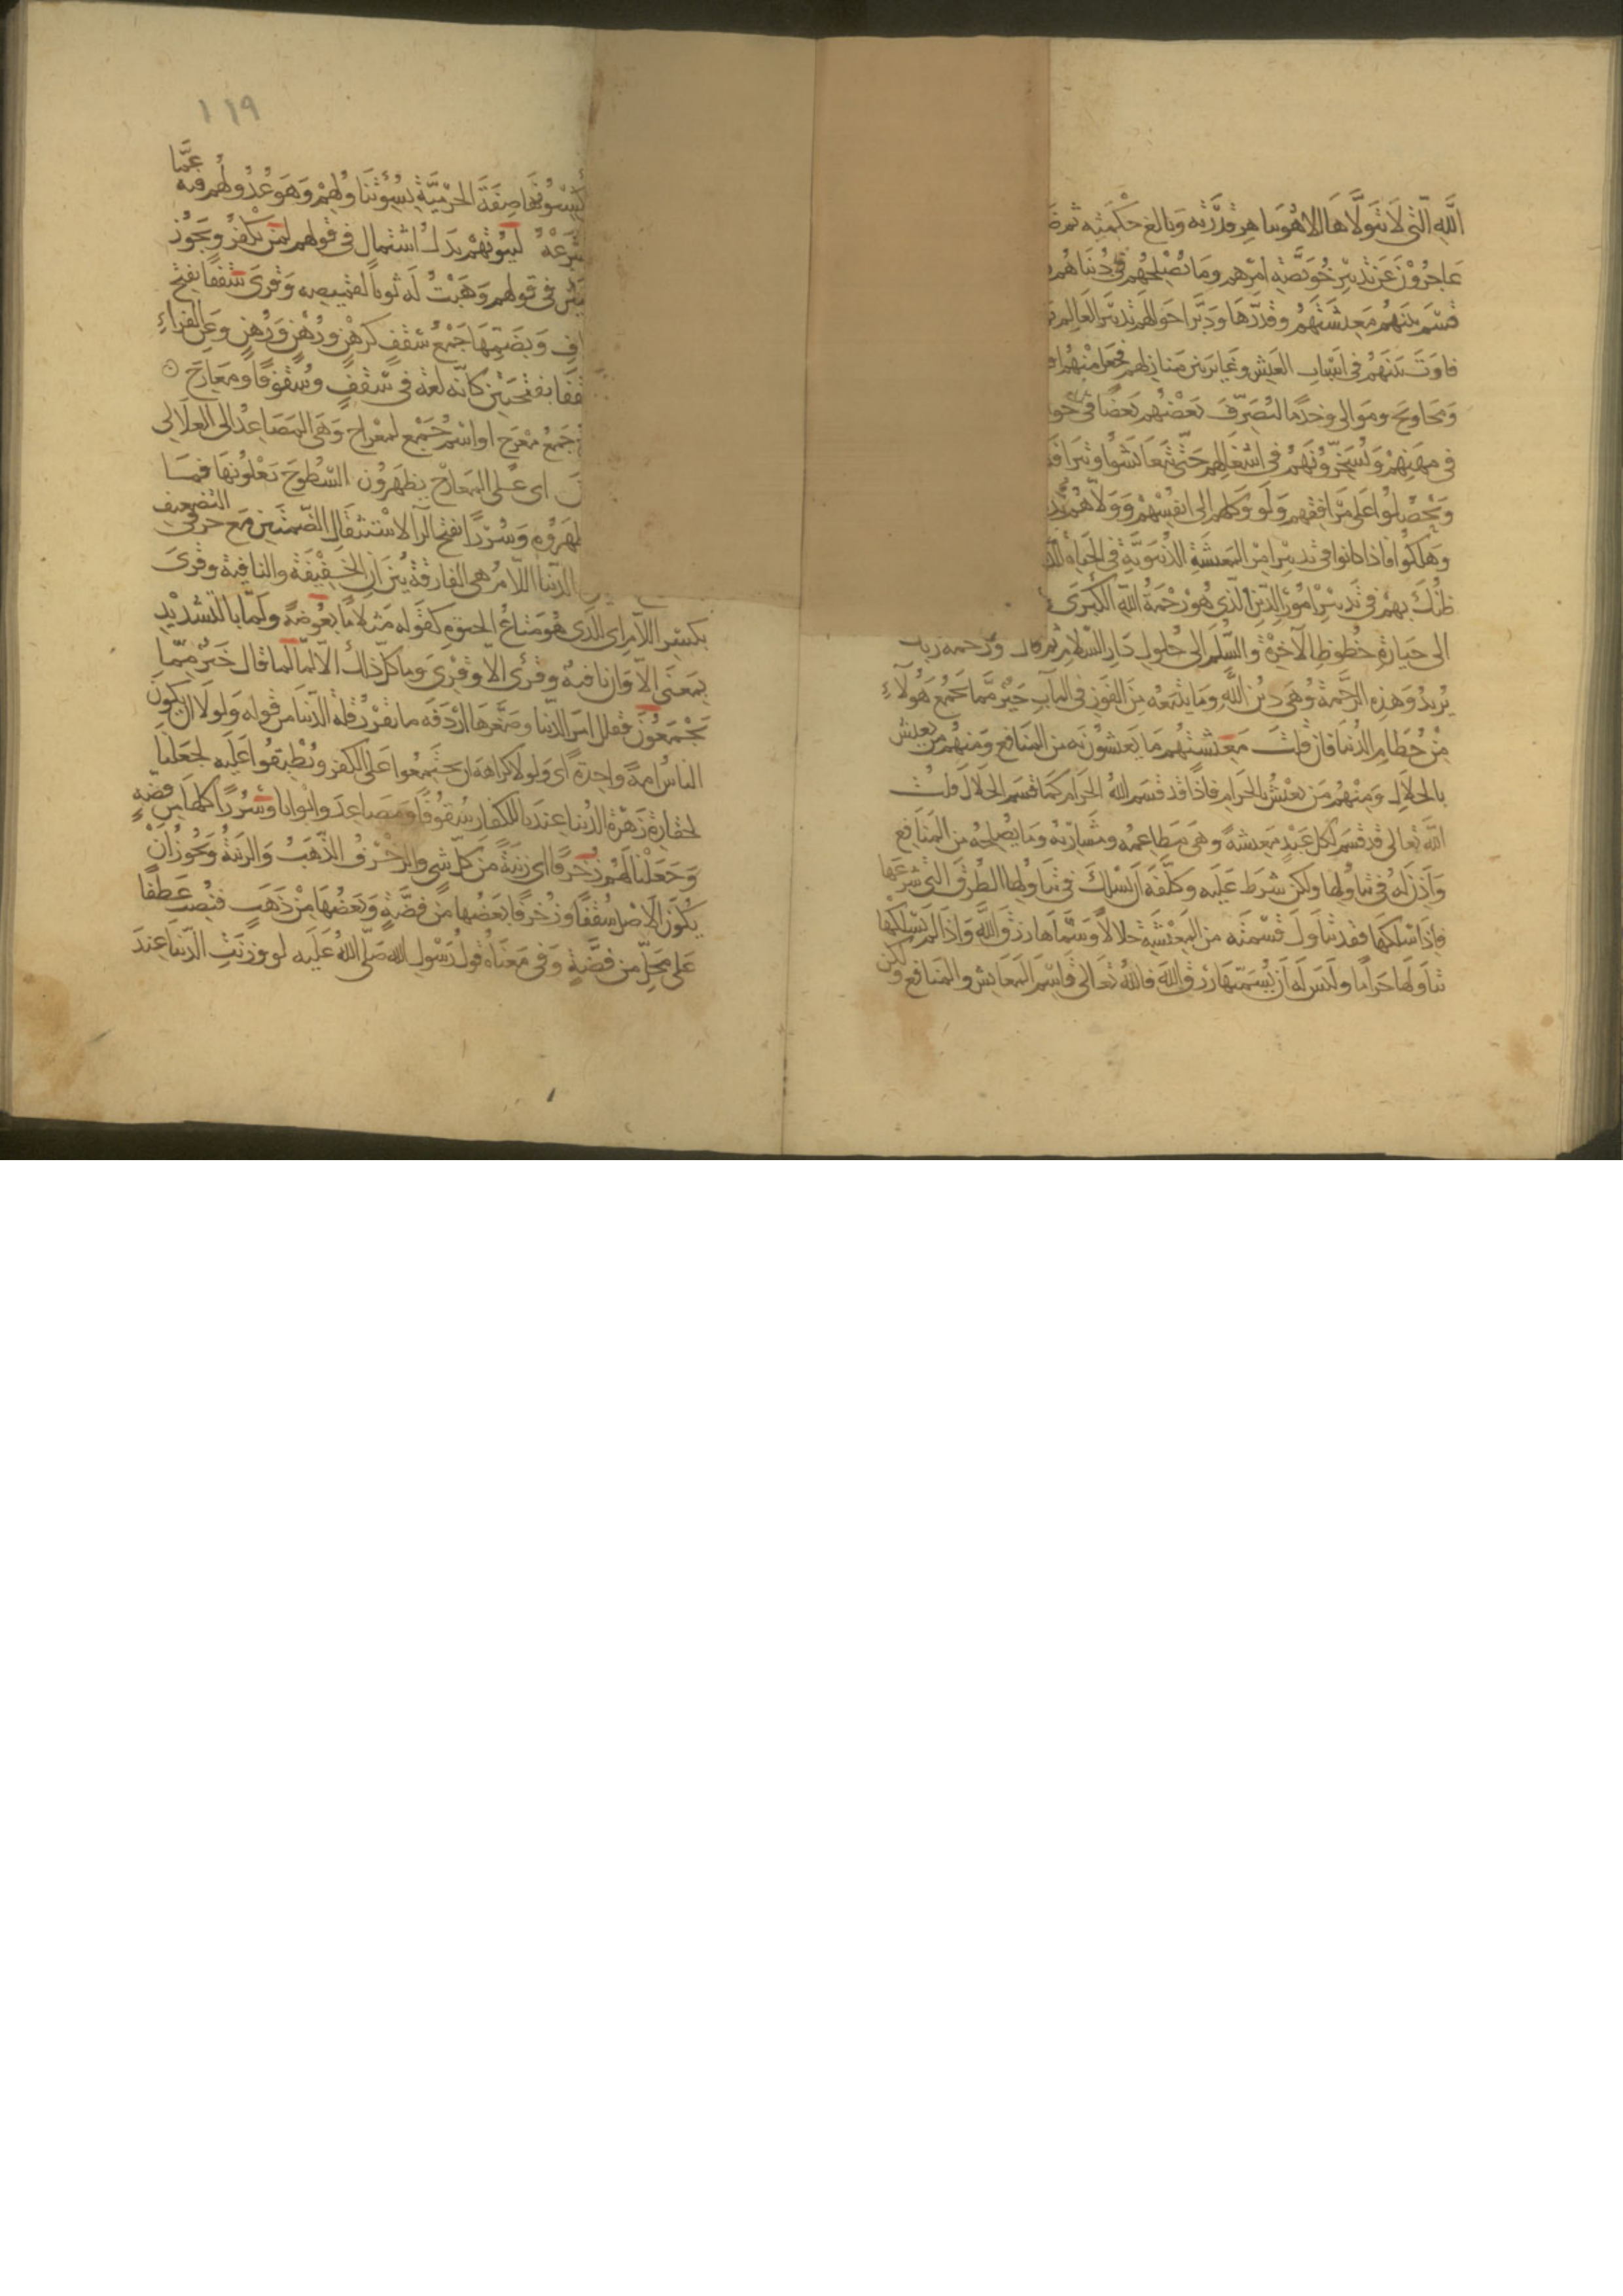 الله التى لا يتولاها الا هو بباهر قدرته وبالغ حكمته ثم
عاجزون عن تدبير خويصة امرهم وما يصلحهم فى دنياهم
قسم بينهم معيشتهم وقدرها ودبر احوالهم تدبير العالم
فاوت بينهم فى اسباب العيش وغاير بين منازلهم فجعل منهم
ومحاويج وموالى وخدما ليصرف بعضهم بعضا فى
فى مهنهم ويسخرونهم فى اشغالهم حتى يتعايشوا
ويحصلوا على مرافقهم ولو وكلهم الى انفسهم وولاهم
وهلكوا فاذا كانوا فى تدبير امر المعيشة الدنيوية فى الحياة
ظنك بهم فى تدبير امور الدين الذى هو رحمة الله الكبرى
الى حيازة حظوظ الآخرة والسلم الى حلول دار السلام ثم قال ورحمة ربك
يريد وهذه الرحمة وهى دين الله وما يتبعه من الفوز فى المآب خير مما يجمع هؤلآء
من حطام الدنيا فان قلت معيشتهم ما يعيشونه من المنافع ومنهم من يعيش
بالحلال ومنهم من يعيش بالحرام فاذا قد قسم الله الحرام كما قسم الحلال قلت
الله تعالى قد قسم لكل عبد معيشة وهى مطاعمه ومشاربه وما يصلحه من المنافع
واذن له فى تناولها ولكن شرط عليه وكلفه ان يسلك فى تناولها الطرق التى شرعها
فاذا سلكها فقد تناول قسمته من المعيشة حلالا وسماها رزق الله واذا لم يسلكها
تناولها حراما وليس له ان يسميها رزق الله فالله تعالى قاسم المعايش والمنافع ولكن
١١٩
يكسبونها صفة الحرمية بسوء تناولهم وهو عدولهم فيه عما
شرعه لبيوتهم بدل اشتمال فى قولهم لمن يكفر ويجوز
فى قولهم وهبت له ثوبا لقميصه وقرئ سقفا بفتح
وبضمها جمع سقف كرهن ورهن ورهن وعن الفراء
بفتحتين كانه لغة فى سقف وسقوفا ومعارج
جمع معرج او اسم جمع لمعراج وهى المصاعد الى العلالى
اى على المعارج يظهرون السطوح يعلونها فما
وسررا بفتح الرآ لاستثقال الضمتين مع حرفى التضعيف
الدنيا اللام هى الفارقة بين ان الخفيفة والنافية وقرئ
بكسر اللام اى للذى هو متاع الحيوة كقوله مثلا ما بعوضة ولما بالتشديد
بمعنى الا وان نافية وقرئ الا وقرئ وما كل ذلك الا لما قال خير مما
يجمعون فقلل امر الدنيا وصغرها اردفه ما يقرر قلة الدنيا من قوله ولولا ان يكون
الناس امة واحدة اى ولولا كراهة ان يجتمعوا على الكفر ويطبقوا عليه لجعلنا
لحقارة زهرة الدنيا عندنا للكفار سقوفا ومصاعد وابوابا وسررا كلها من فضة
وجعلنا لهم زخرفا اى زينة من كل شى والزخرف الذهب والزينة ويجوز ان
يكون الاصل سقفا وزخرفا بعضها من فضة وبعضها من ذهب فنصب عطفا
على محل من فضة وفى معناه قول رسول الله صلى الله عليه لو وزنت الدنيا عند